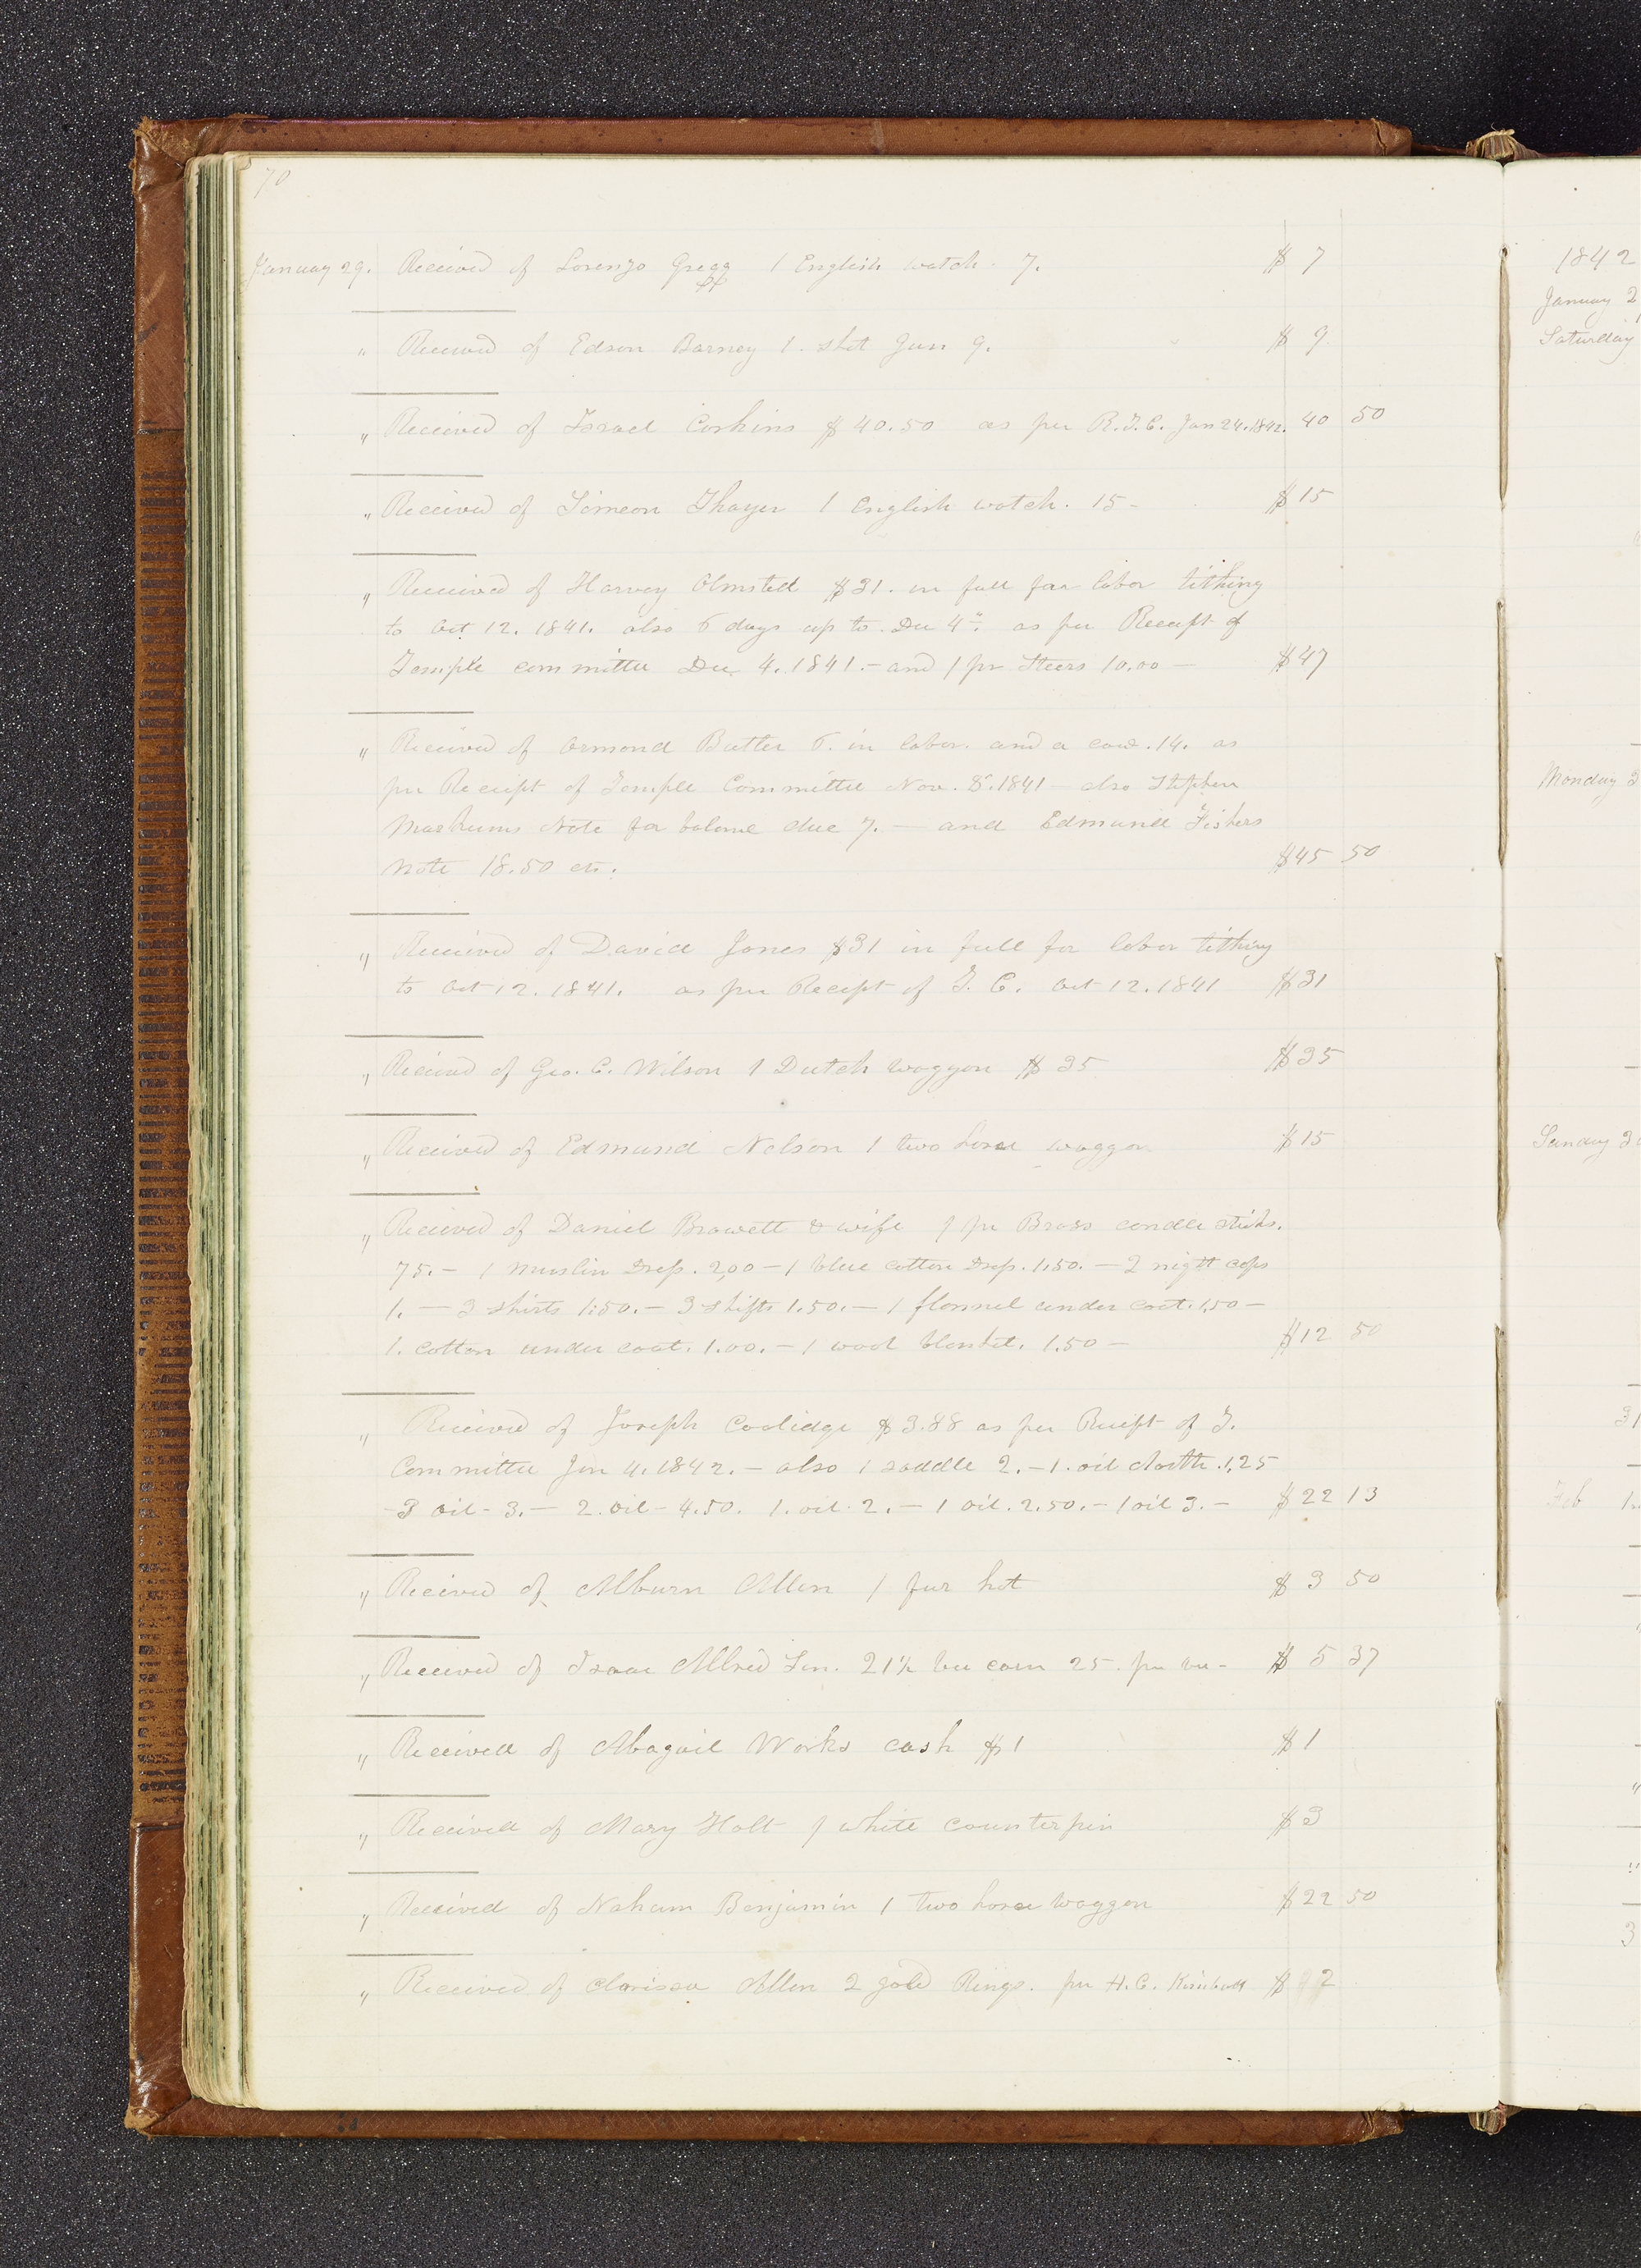 70
January 29. Received of Lorenzo Gregg 1 English watch 7. $ 7
" Received of Edson Barney 1. shot Gun 9. $ 9
" Received of Israel Corkins $ 40.50 as per R.T.C. Jan 24. 1842. 40 50
" Received of Simeon Thayer 1 English watch. 15- $ 15
" Received of Harvey Olmsted $31. in full for labor tithing
to Oct 12. 1841. also 6 days up to Dec 4th. as per Receipt of
Temple committee Dec 4. 1841.- and 1 pr Steers 10.00 - $47
" Received of Ormond Butler 6. in labor. and a cow. 14. as
per Receipt of Temple Committee Nov. 8. 1841 - also Stephen
Markums Note for balance due 7. - and Edmund Fishers
Note 18.50 cts. $45 50
" Received of David Jones $31 in full for labor tithing
to Oct 12. 1841. as per Receipt of T. C. Oct 12. 1841 $31
" Received of Geo. C. Wilson 1 Dutch waggon $ 35 $35
" Received of Edmund Nelson 1 two horse waggon $15
" Received of Daniel Browett & wife 1 pr Brass candle sticks.
75.- 1 Muslin Dress. 2,00 - 1 blue cotton Dress. 1.50. - 2 night caps
1. - 3 shirts 1.50. - 3 shifts 1.50. - 1 flannel under coat. 1,50 -
1. cotton under coat. 1.00. - 1 wool blanket. 1.50 - $12 50
" Received of Joseph Coolidge $3.88 as per Receipt of T.
Committee Jan 4. 1842. - also 1 saddle 2. - 1. oil cloth. 1,25
- 3 oil - 3. - 2. oil - 4.50. 1. oil. 2. - 1 oil. 2.50. - 1 oil 3. - $ 22 13
" Received of Alburn Allen 1 fur hat $ 3 50
" Received of Isaac Allred Sen. 21½ bu corn 25. per bu - $ 5 37
" Received of Abagail Works cash $1 $1
" Received of Mary Holt 1 white counterpin $3
" Received of Nahum Benjamin 1 two horse waggon $22 50
" Received of Clarissa Allen 2 gold Rings. per H.C. Kimball $ 2
1842
January 2
Saturday
Monday 3
Sunday 3
31
Feb 1
3